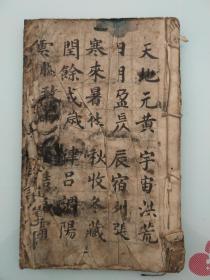 天地元黃宇宙洪荒
日月盈昃辰宿列張
寒來暑往秋收冬藏
閏餘成歲律呂調陽
雲騰致雨